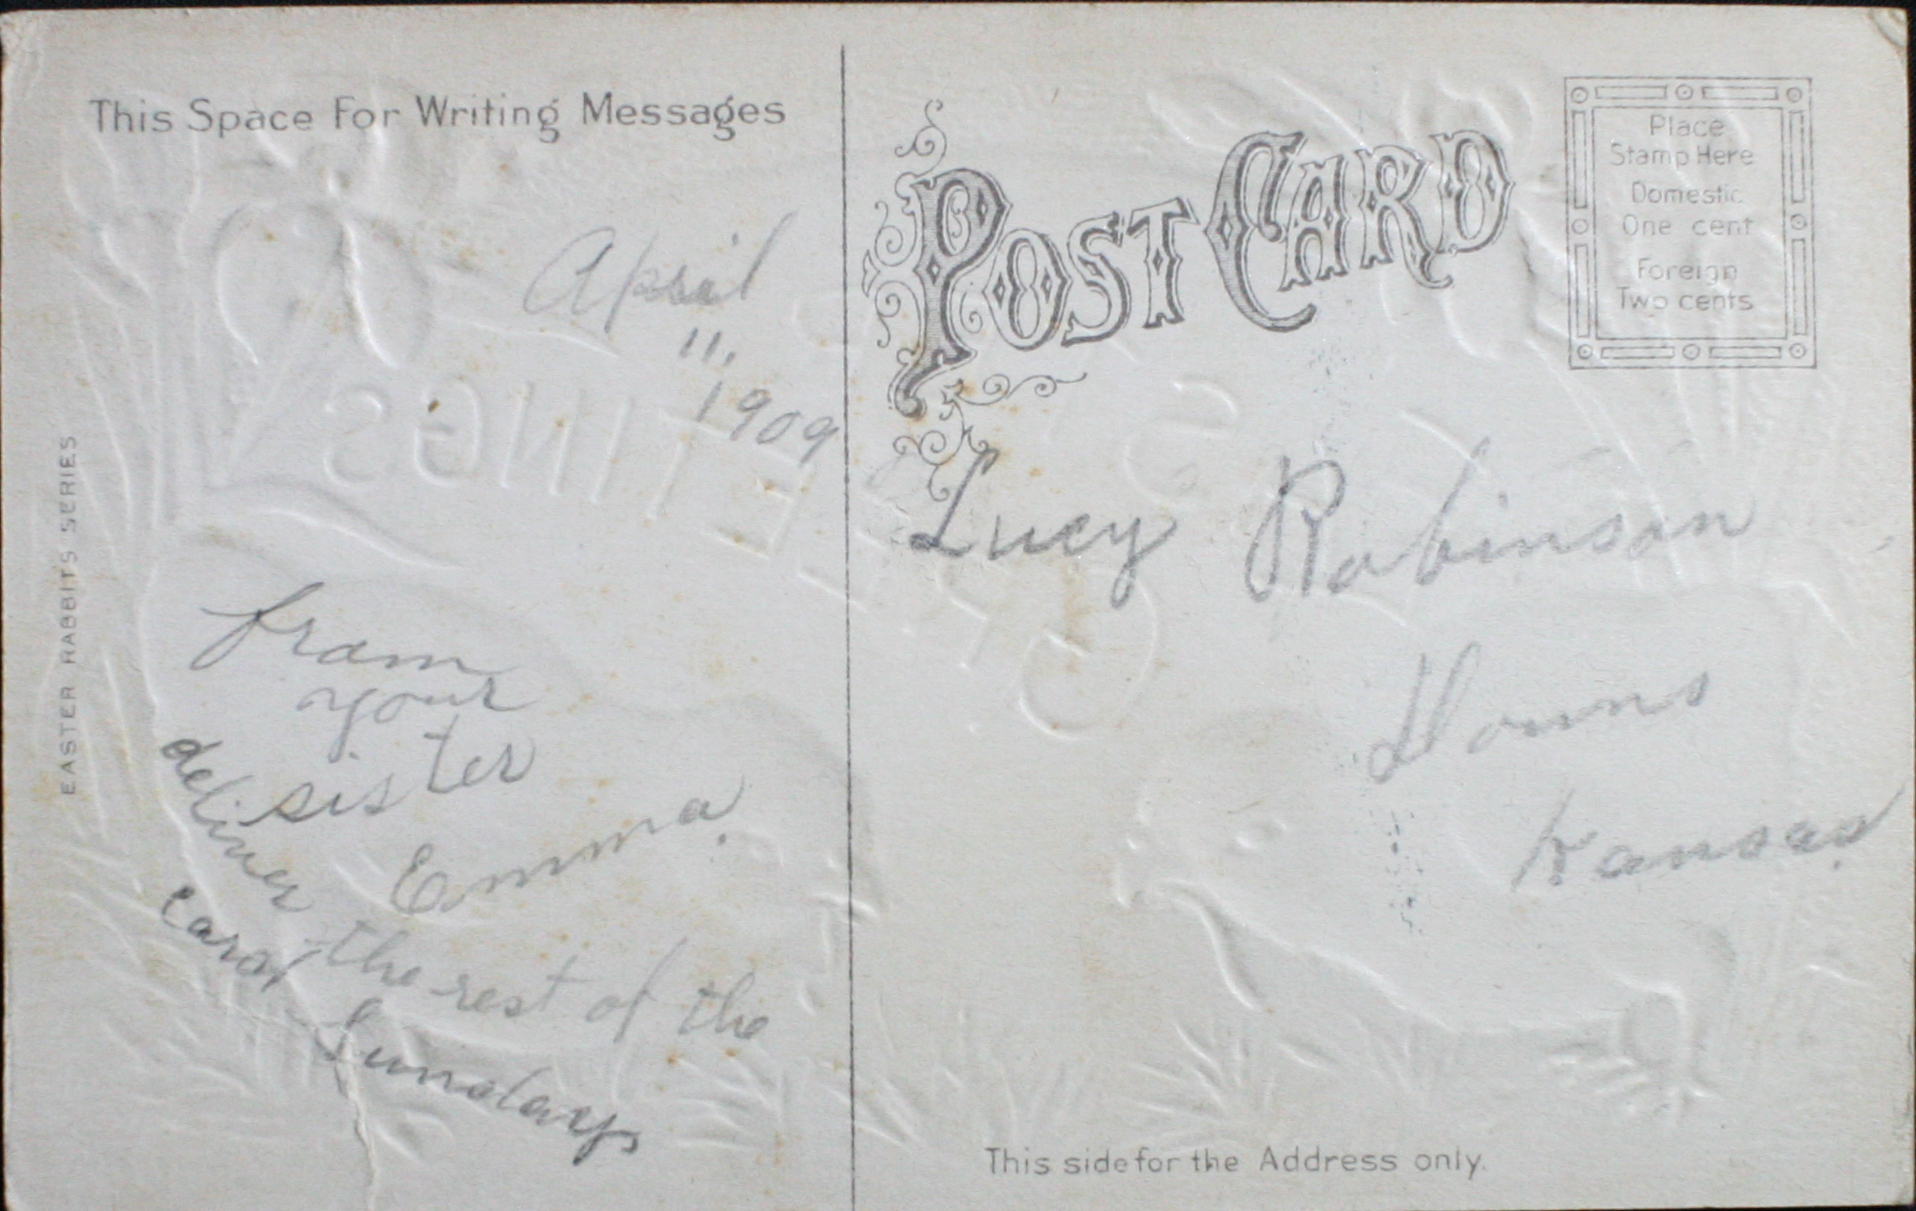 This Space For Writing Messages
April
11.
1909
from
your
sister
Emma.
deliver the rest of the
cards Sundays
EASTER RABBITS SERIES
POST CARD
Place
Stamp Here
Domestic
One cent
Foreign
Two cents
Lucy Robinson
Downs
Kansas
This side for the Address only.
GREETINGS